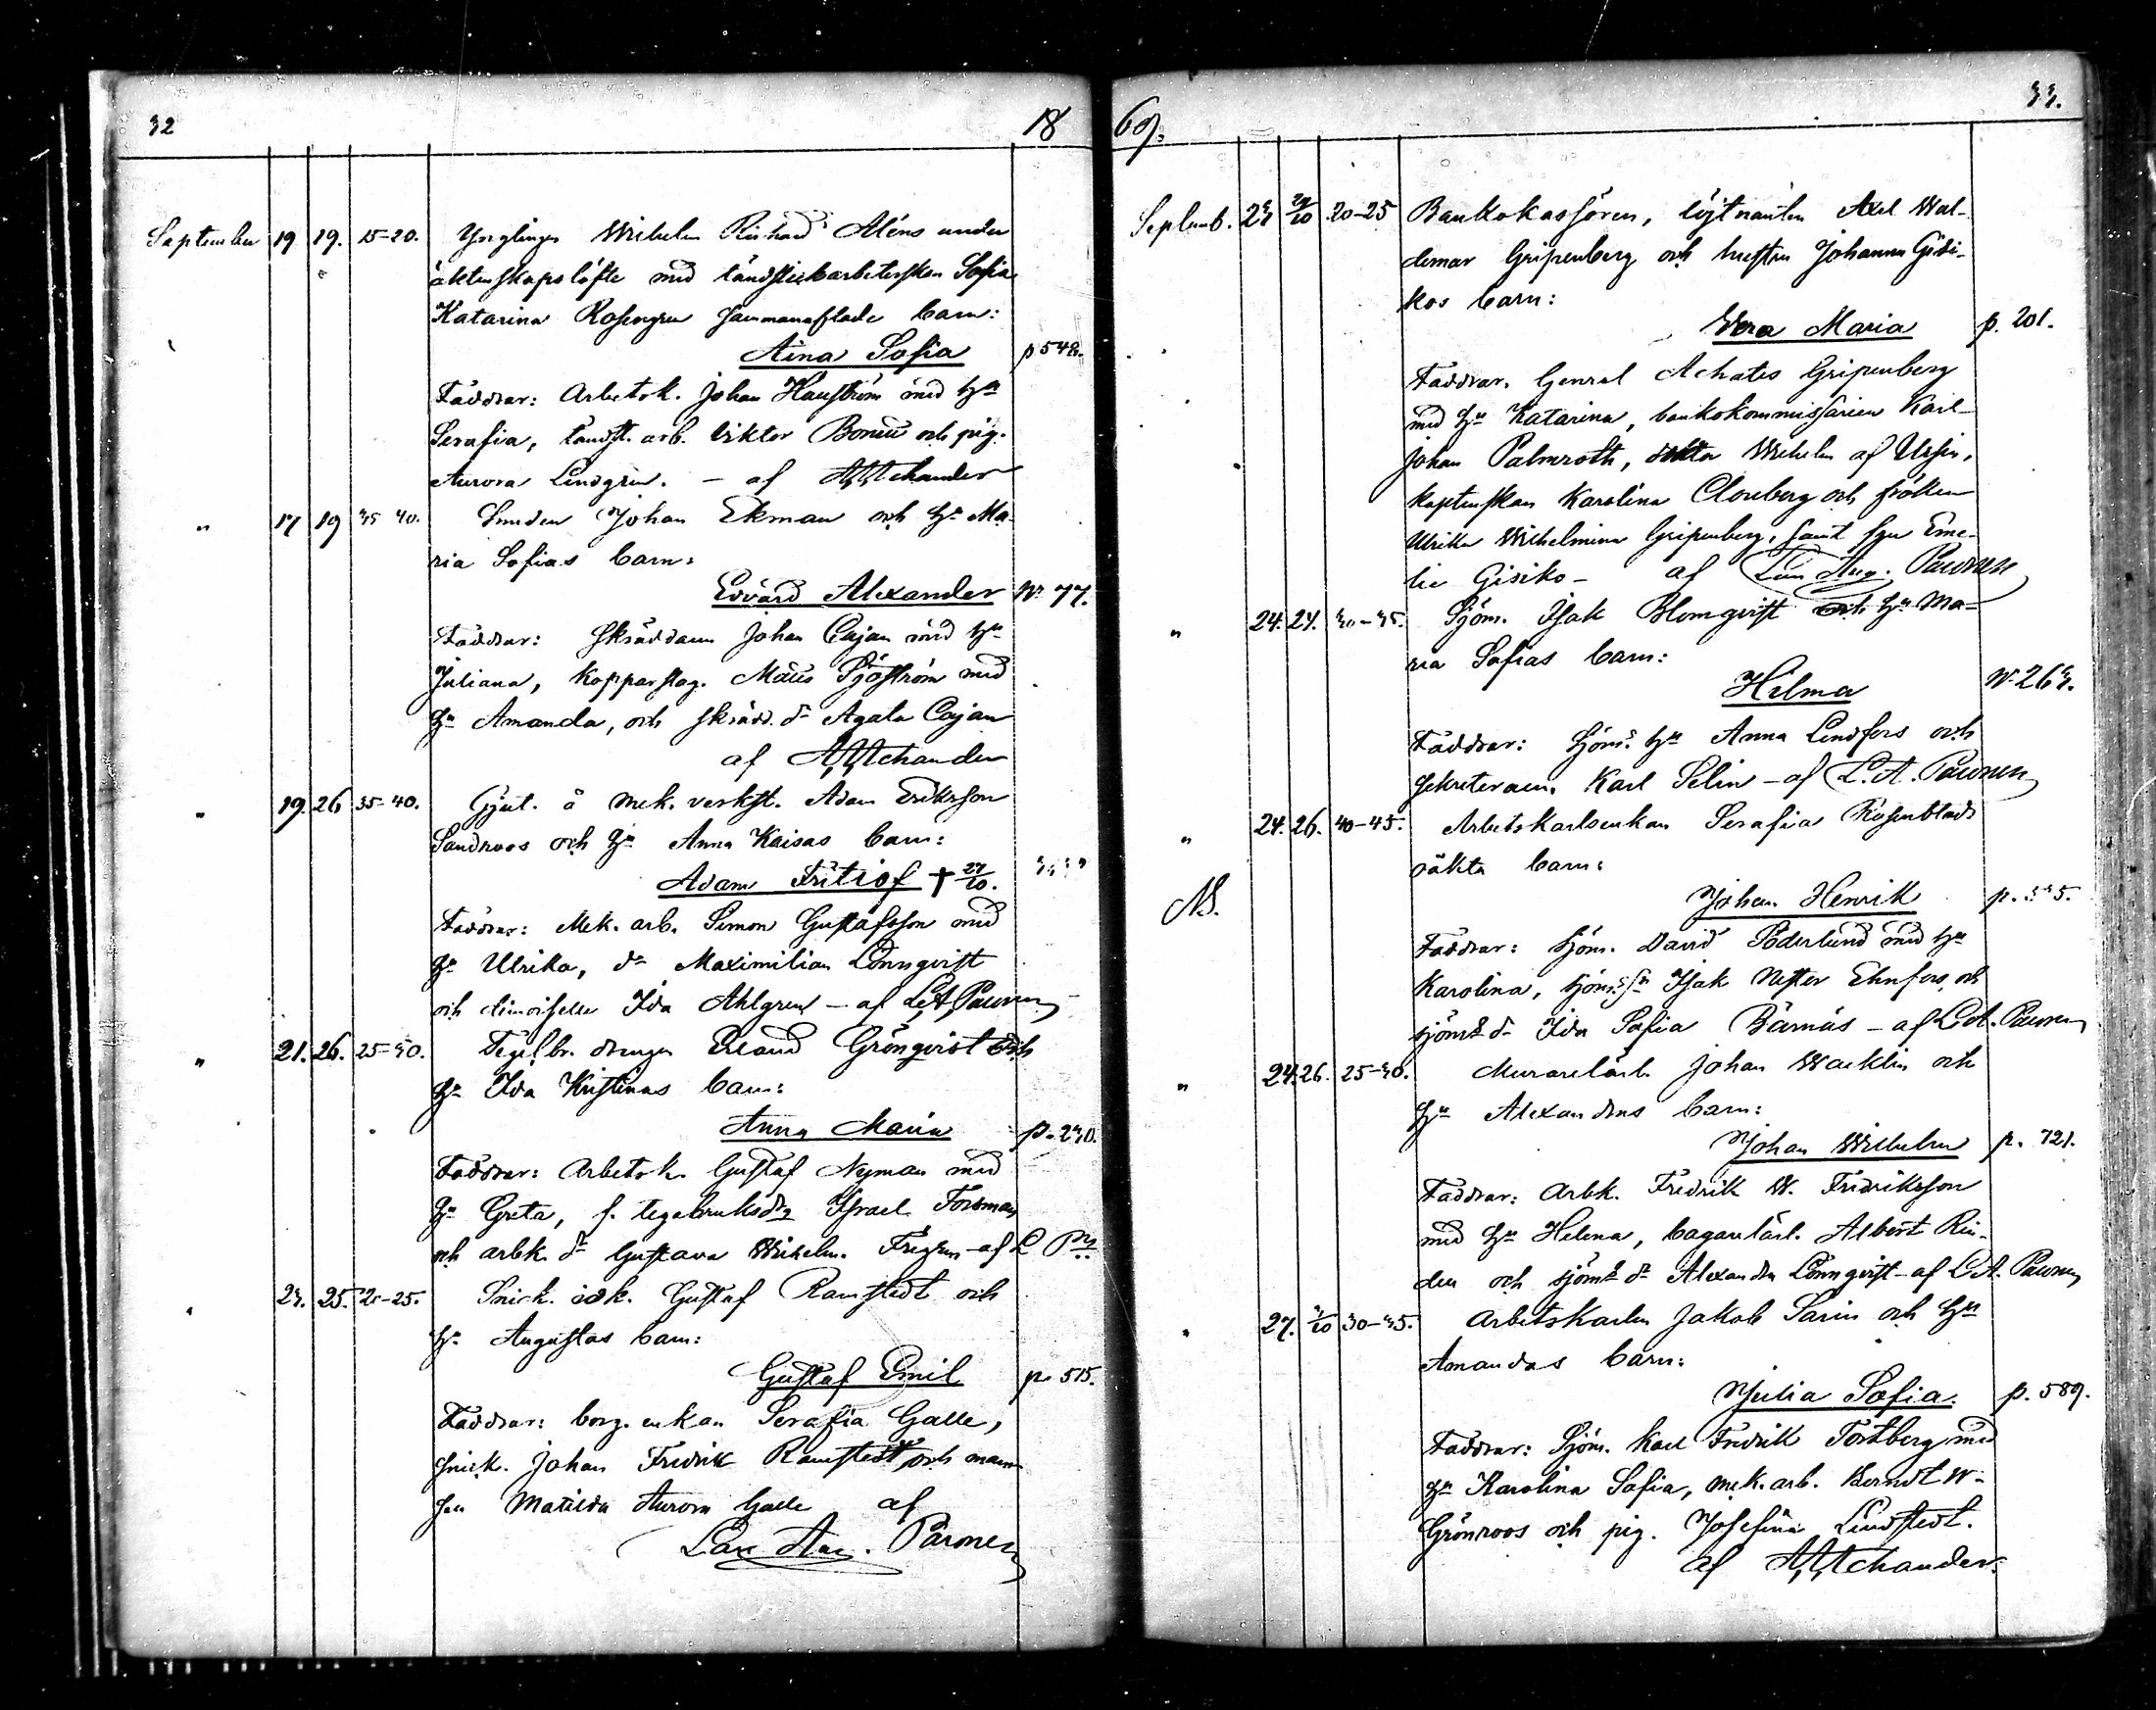 32
18
September 19 19. 15-20. Ynglingen Wilhelm Richard Aléns under
äktenskapslöfte med tändsticksarbeterskan Sofia
Katarina Rosengren sammanaflade barn:
Aina Sofia p 548.
Faddrar: Arbetsk. Johan Hauström med hu
Serafia, tändst. arb. Viktor Boneu och pig.
Aurora Lindgren. – af
" 17 19 35 40. Smeden Johan Ekman och hu Ma-
ria Sofias barn:
Edvard Alexander No 77.
Faddrar: skräddaren Johan Cajan med hu
Juliana, kopparslag. Maus Sjöström med
hu Amanda, och skrädd. dr Agata Cajan
af
" 19. 26 35-40. Gjut. å mek. verkst. Adam Eriksson
Sandroos och hu Anna Kaisas barn:
Adam Fritiof † 27/10.
Faddrar: Mek. arb. Simon Gustafsson med
hu Ulrika, dn Maximilian Lönnqvist
och Ida Ahlgren – af L.A. Päwonen
" 21. 26. 25-30. Tegelbr. drengen Erland Grönqvist och
hu Ida Kristinas barn:
Anna Maria p. 230.
Faddrar: Arbetsk. Gustaf Nyman med
hu Greta, f. tegelbruksdrg Israel Forsman
och arbk. dr Gustava Wilhelm. – af L Pn
" 23. 25. 20-25. Snick. idk. Gustaf Ramstedt och
hu Augustas barn:
Gustaf Emil p. 515.
Faddrar: borg. enkan Serafia Galle,
snick. Johan Fredrik Ramstedt och mam-
sen Matilda Aurora Galle af
Lars Aug. Päwonen
69.
33.
Septemb. 23 29/10 20-25 Bankokassören, löjtnanten Axel Wal-
demar Gripenberg och hustru Johanna Gisi-
kos barn:
Wera Maria p. 201.
Faddrar. General Achates Gripenberg
med hu Katarina, bankokommissarien Karl
Johan Palmroth, doktor Wilhelm af Ursin,
kaptenskan Karolina Clouberg och fröken
Ulrika Wilhelmina Gripenberg, samt fru Eme-
lie Gisiko – af Lars Aug. Päwonen
" 24. 24. 30-35. Sjöm. Isak Blomqvist och hu Ma-
ria Sofias barn:
Hilma No 263.
Faddrar: Sjöms hu Anna Lindfors och
sekreteraren Karl Selin – af L.A. Päwonen
" 24. 26. 40-45. Arbetskarlsenkan Serafia Rosenblads
oäkta barn:
NB.
Johan Henrik p. 335.
Faddrar: sjöm. David Söderlund med hu
Karolina, sjöms sn Isak Nestor Ehnfors och
sjöms dr Ida Sofia Bärnäs – af L.A. Päwonen
" 24. 26. 25-30. Murarelärl. Johan Wacklin och
hu Alexandras barn:
Johan Wilhelm p. 721.
Faddrar: Arbk. Fredrik W. Fridriksson
med hu Helena, bagarelärl. Albert Rin-
den och sjöms dr Alexandra Lönnqvist – af L.A. Päwonen
" 27. 3/10 30-35. Arbetskarlen Jakob Sarin och hu
Amandas barn:
Julia Sofia. p. 589.
Faddrar: Sjöm. Karl Fredrik Forsberg med
hu Karolina Sofia, mek. arb. Berndt W.
Grönroos och pig. Josefina Lindstedt.
af